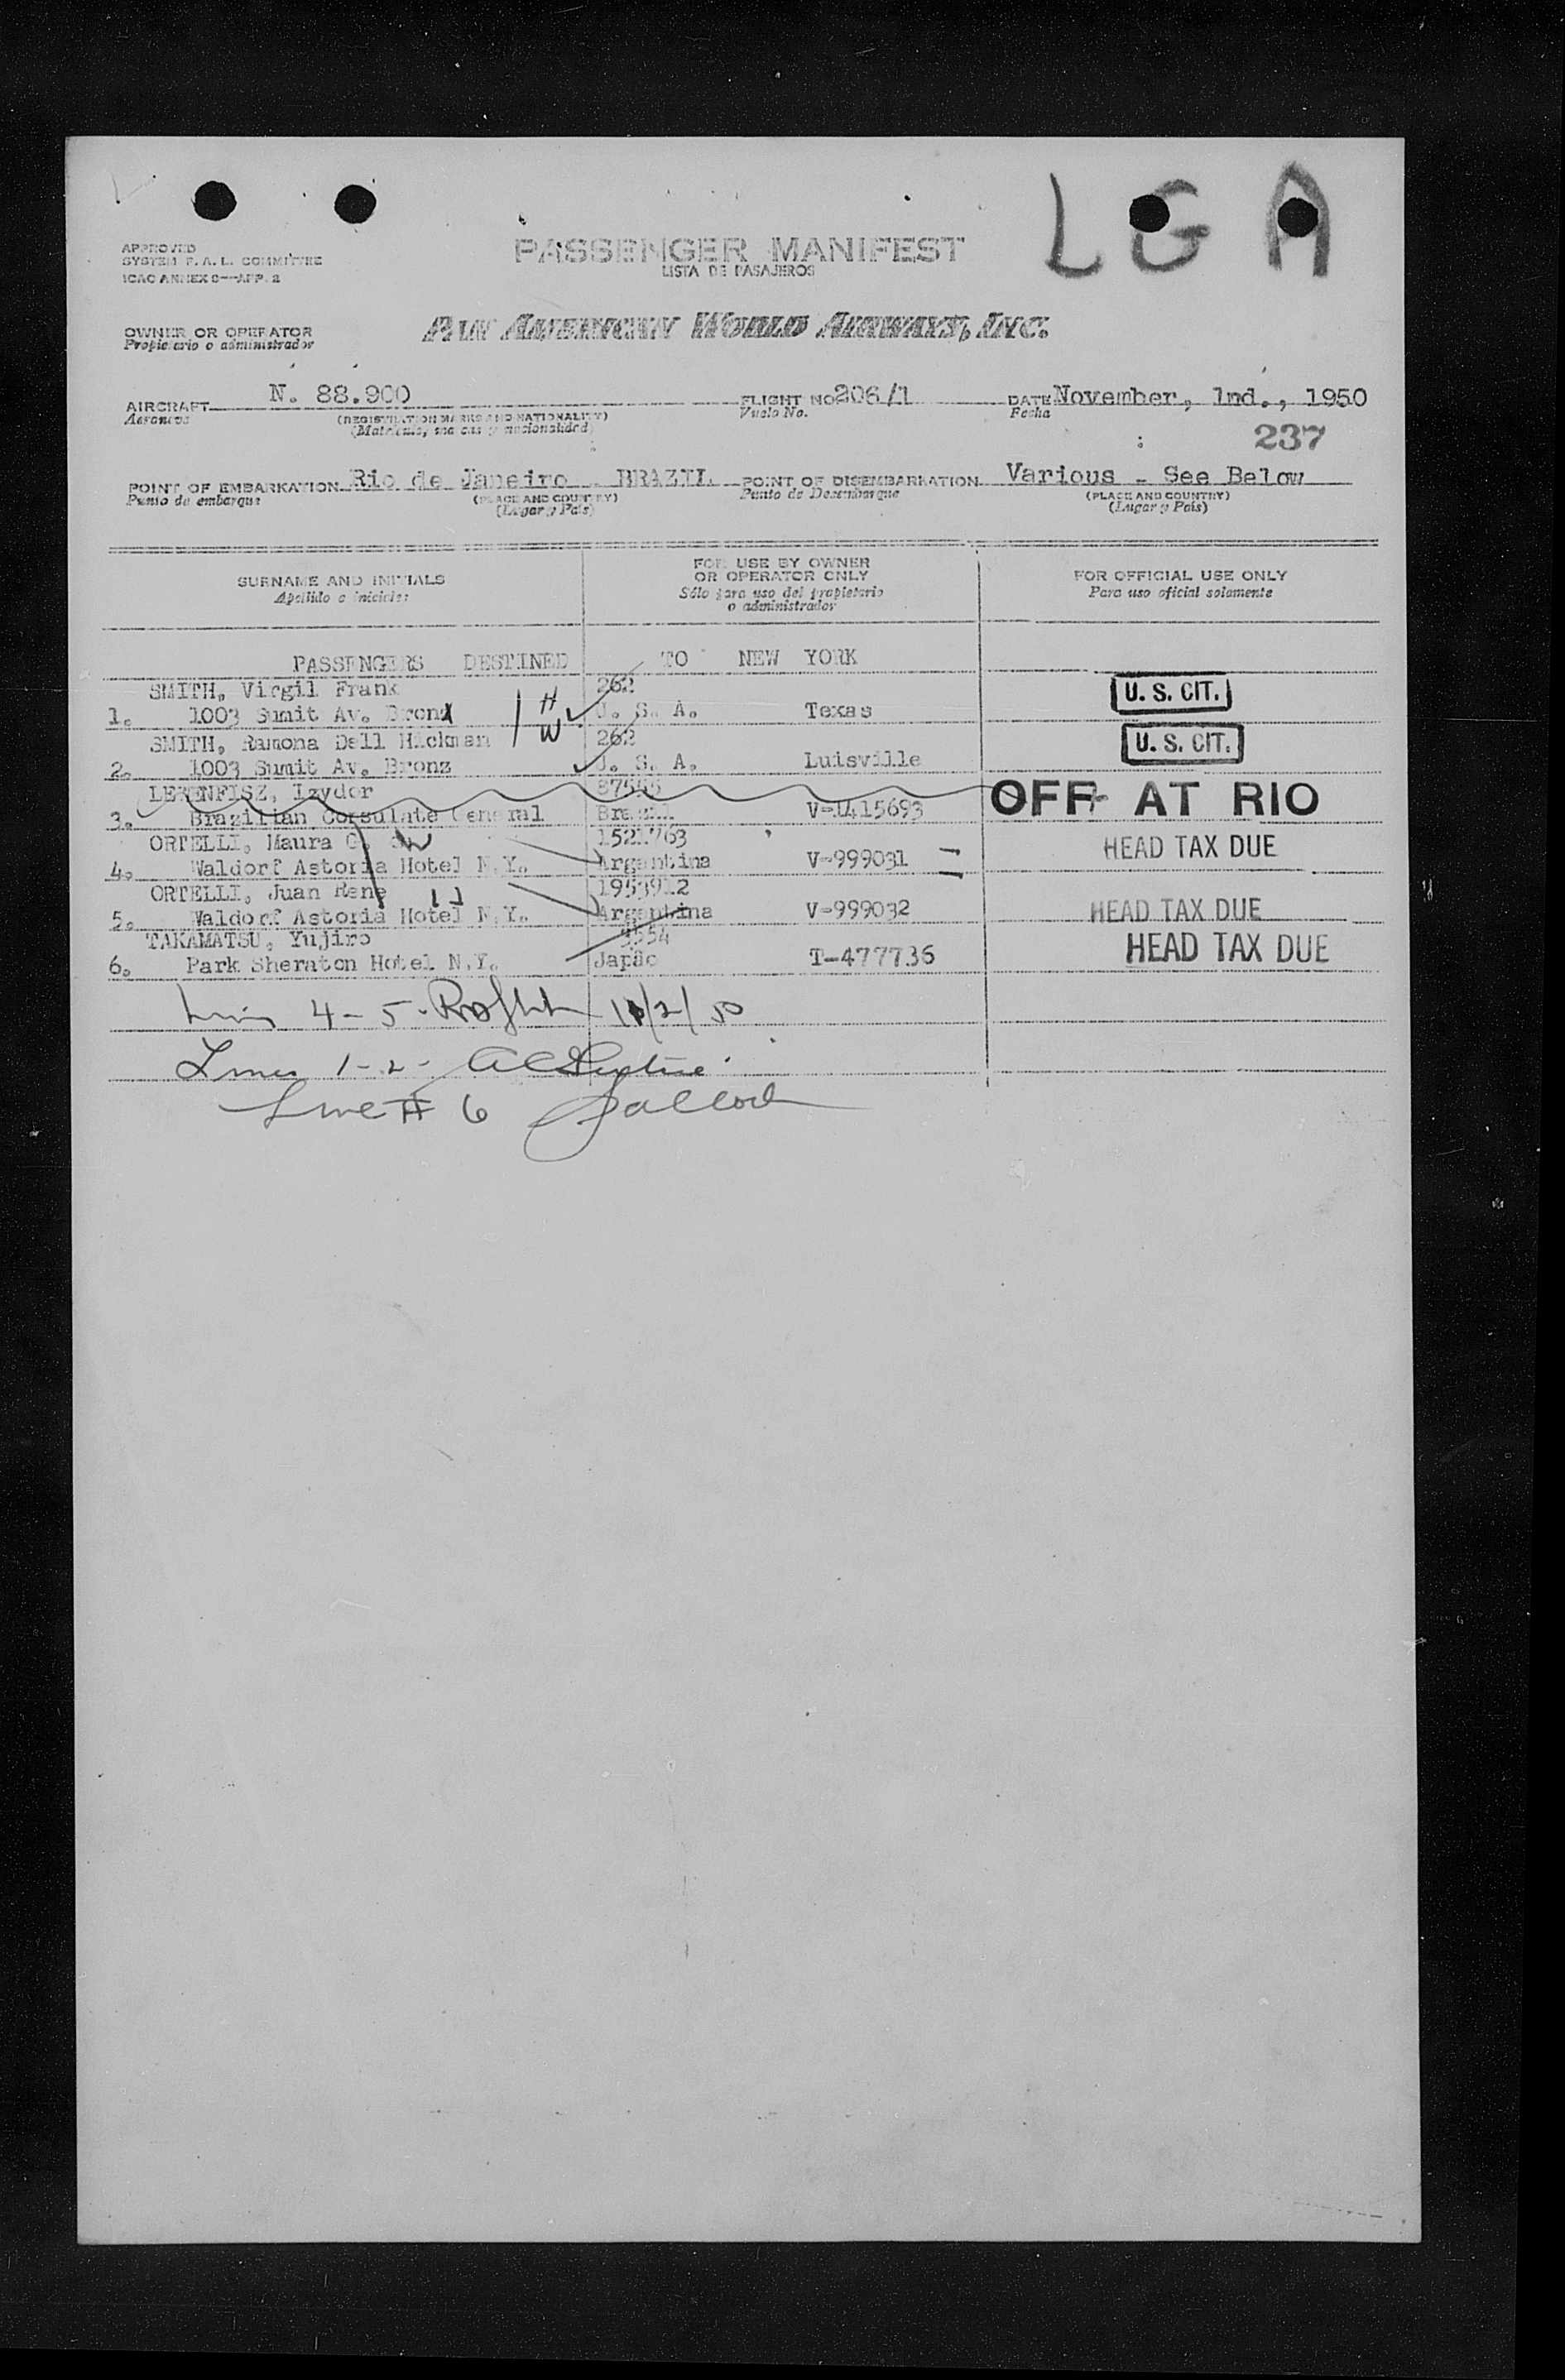 LGA
APPROVED
SYSTEM F. A. L. COMMITTEE
ICAO ANNEX 9—APP. 2
PASSENGER MANIFEST
LISTA DE PASAJEROS
OWNER OR OPERATOR
Propietario o administrador
PAN AMERICAN WORLD AIRWAYS, INC.
AIRCRAFT N. 88.900 FLIGHT NO 206/1 DATE November, 1nd., 1950
Aeronave (REGISTRATION MARKS AND NATIONALITY) Vuelo No. Fecha
(Matrícula, marcas y nacionalidad)
237
POINT OF EMBARKATION Rio de Janeiro - BRAZIL POINT OF DISEMBARKATION Various - See Below
Punto de embarque (PLACE AND COUNTRY) Punto de Desembarque (PLACE AND COUNTRY)
(Lugar y País) (Lugar y País)
SURNAME AND INITIALS FOR USE BY OWNER OR OPERATOR ONLY FOR OFFICIAL USE ONLY
Apellido e iniciales Sólo para uso del propietario o administrador Para uso oficial solamente
PASSENGERS DESTINED TO NEW YORK
SMITH, Virgil Frank H 262 U. S. CIT.
1. 1003 Sumit Av. Bronx W U. S. A. Texas
SMITH, Ramona Dell Hickman 262 U. S. CIT.
2. 1003 Sumit Av. Bronz U. S. A. Luisville
Izydor OFF AT RIO
3. Brazilian Consulate General Brazil V-1415693
ORTELLI, Maura G. W 1521763 HEAD TAX DUE
4. Waldorf Astoria Hotel N.Y. Argentina V-999031
ORTELLI, Juan Rene 1953912
5. Waldorf Astoria Hotel N.Y. Argentina V-999032 HEAD TAX DUE
TAKAMATSU, Yujiro HEAD TAX DUE
6. Park Sheraton Hotel N.Y. Japão T-477736
4-5- 11/2/50
Lines 1-2-
Line # 6